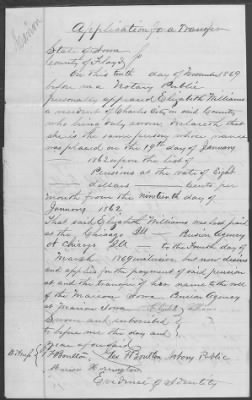 Marion
Application for a Transfer
State of Iowa
County of Floyd
On this tenth day of November 1869
before me a Notary Public
personally appeared Elizabeth Williams
a resident of Charles City in said County
who being duly sworn declareth that
she is the same person whose name
was placed on the 19th day of January
1862 upon the list of
Pensions at the rate of Eight
dollars cents per
month from the nineteenth day of
January 1862
That said Elizabeth Williams was last paid
at the Chicago Ill Pension Agency
at Chicago Ill to the fourth day of
March but now desires
and applies for the payment of said pension
at and the transfer of her name to the roll
of the Marion Iowa Pension Agency
at Marion Iowa
Sworn and subscribed
to before me the day and
year aforesaid
Witness Notary Public
Evidence of Identity